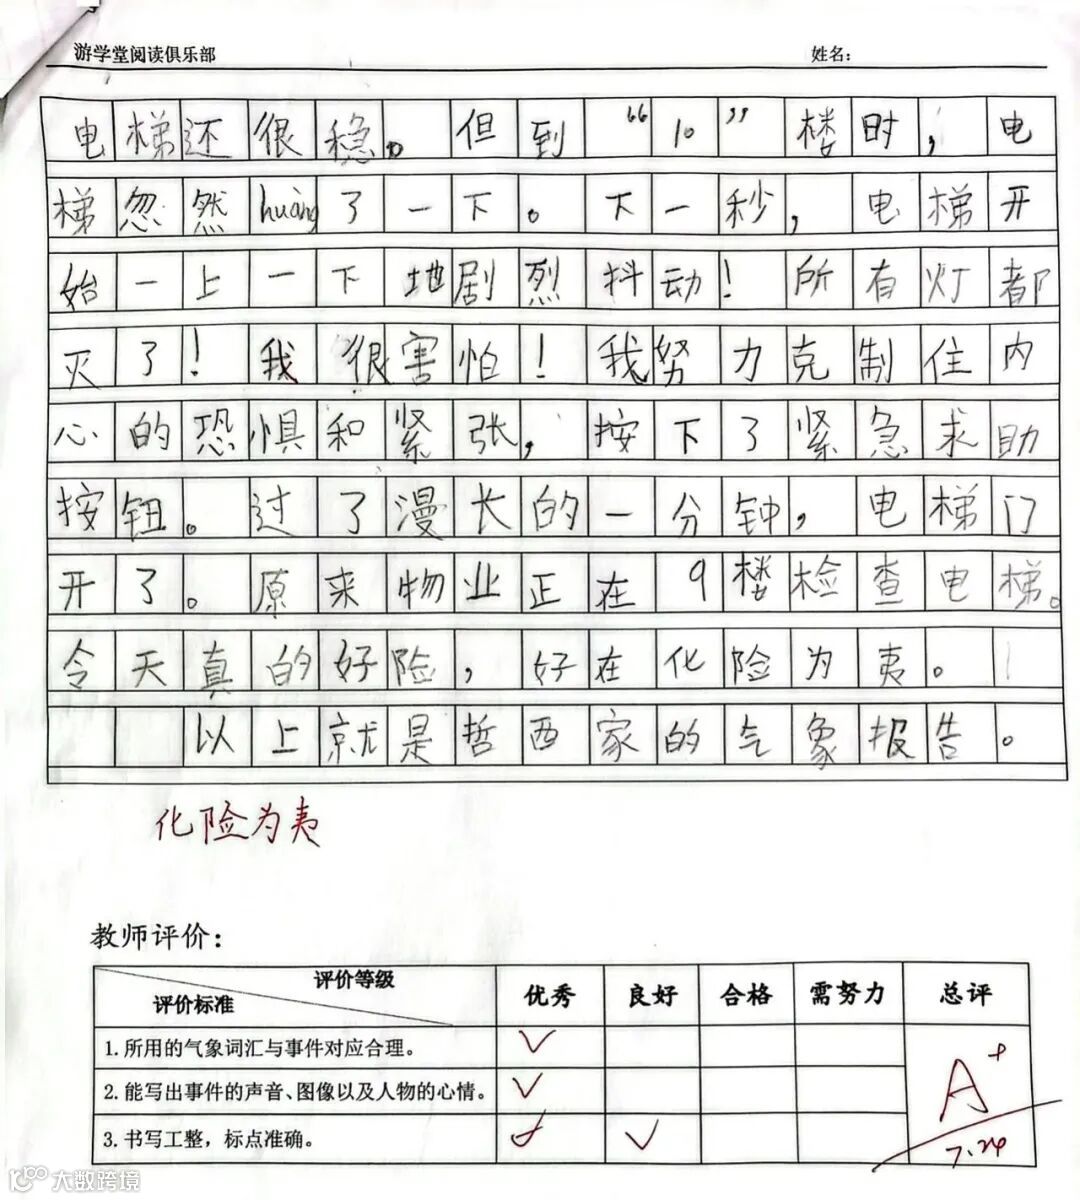 游学堂阅读俱乐部 姓名：
电梯还很稳。但到“10”楼时，电
梯忽然huàng了一下。下一秒，电梯开
始一上一下地剧烈抖动！所有灯都
灭了！我很害怕！我努力克制住内
心的恐惧和紧张，按下了紧急求助
按钮。过了漫长的一分钟，电梯门
开了。原来物业正在9楼检查电梯。
今天真的好险，好在化险为夷。
以上就是哲西家的气象报告。
化险为夷
教师评价：
评价等级
评价标准 优秀 良好 合格 需努力 总评
1.所用的气象词汇与事件对应合理。 ✓
2.能写出事件的声音、图像以及人物的心情。 ✓
3.书写工整，标点准确。 ✓ ✓
A+
7.24
大数跨境